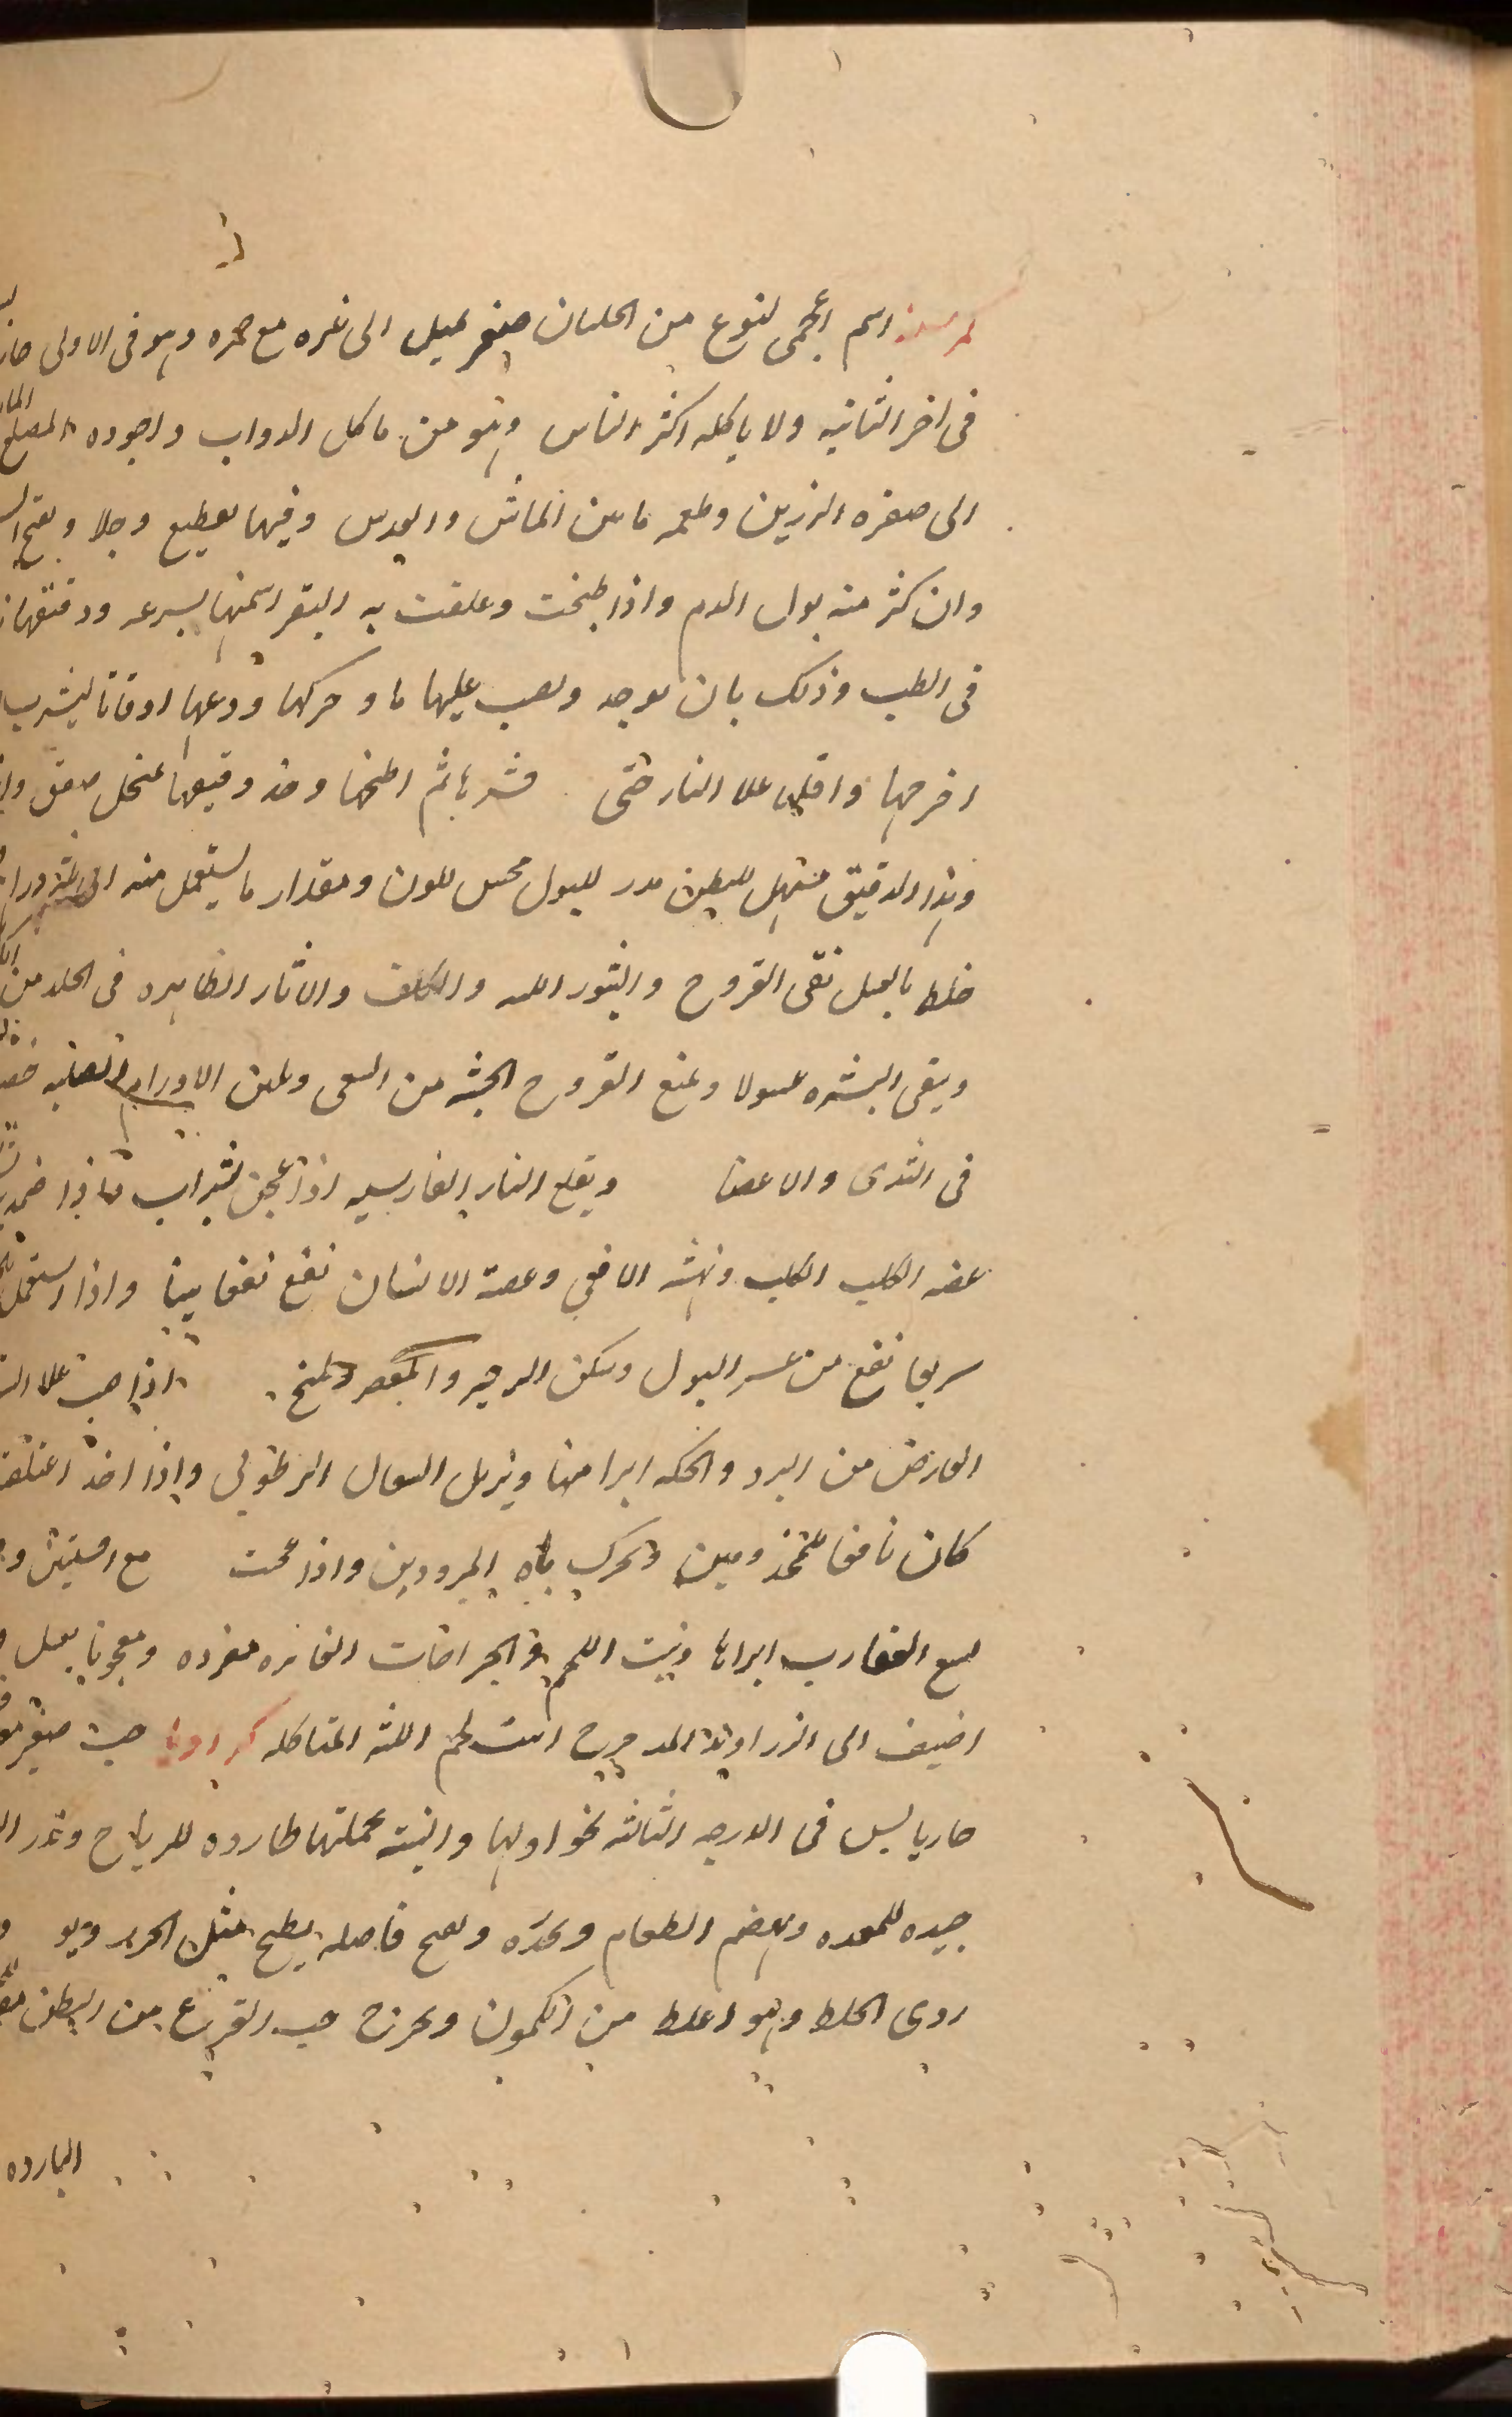 كرسنه اسم اعجمى لنوع من الجلبان صغير يميل الى غبره مع حمره وهو فى الاولى حار
فى اخر الثانيه ولا ياكله اكثر الناس وهو من ماكل الدواب واجوده المصلع
الى صفره الرزين وطعمه ما بين الماش والعدس وفيها تقطيع وجلا ويفتح
وان كثر منه بول الدم واذا طبخت وعلفت به البقر اسمنها بسرعه ودقيقها
فى الطب وذلك بان يوخد ويصب عليها ما وحركها ودعها اوقاتا ليشرب
اخرجها واقليها على النار حتى قشرها ثم اطحنها وخذ دقيقها بمنخل صفيق
وهذا الدقيق مسهل للبطن مدر للبول محسن للون ومقدار ما يستعمل منه
خلط بالعسل نقى القروح والبثور اللبنيه والكلف والاثار الظاهره فى الجلد من
وينقى البشره غسولا ويمنع القروح الخبيثه من السعى ويلين الاورام الصلبه
فى الثدى والاعضا ويقلع النار الفارسيه اذا عجن بشراب واذا ضمد
عضه الكلب الكلب ونهشه الافعى وعضه الانسان نفع نفعا بينا واذا استعمل
سريعا نفع من عسر البول وسكن الزحير والمغص اذا صب على
العارض من البرد والحكه ابرا منها ويزيل السعال الرطوبى واذا اخذ
كان نافعا للمجذومين ويحرك باه المبرودين واذا عجنت مع افسنتين
لسع العقارب ابراها وينبت اللحم فى الجراحات الغائره مفرده ومعجونا بعسل
اضيف الى الزراوند المدحرج انبت لحم اللثه المتاكله كراويا حب صغير
حار يابس فى الدرجه الثالثه نحو اولها والنبته بجملتها طارده للرياح وتدر
جيده للمعده ويهضم الطعام ويحدره واصله يطبخ مثل الجزر وهو
ردى الخلط وهو اغلظ من الكمون ويخرج حب القرع من البطن
البارده